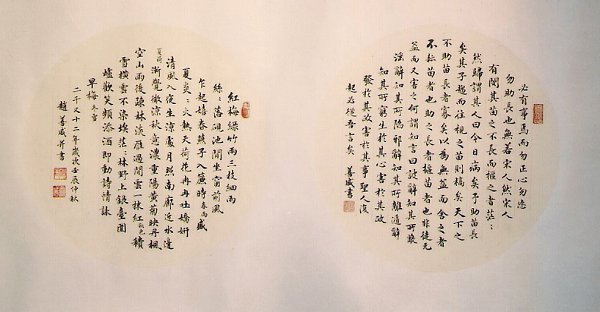 必有事焉而勿正心勿忘
勿助長也無若宋人然宋人
有閔其苗之不長而揠之者茫:
然歸謂其人曰今日病矣予助苗長
矣其子趨而往視之苗則槁矣天下之
不助苗長者寡矣以為無益而舍之者
不耘苗者也助之長者揠苗者也非徒無
益而又害之何謂知言曰詖辭知其所蔽
淫辭知其所陷邪辭知其所離遁辭
知其所窮生於其心害於其政
發於其政害於其事聖人復
起必從吾言矣 善咸書
紅梅綠竹雨三枝細雨
絲:落硯池閒坐窗前風
乍起嬉春燕子入簾時 春雨 盛
夏炎:火熱天荷花冉冉吐嬌妍
清風入夜生涼處月照南廊近水邊
夏荷 漸覺微涼秋意濃重陽黃菊映丹楓
空山雨後疎林淡雁過閒雲一抹紅 秋色 積
雪橫雲不染埃茫:林野上銀臺圍
爐歡笑頻添酒即動詩情詠
早梅 冬雪
二千又十二年歲次壬辰仲秋
趙善咸并書